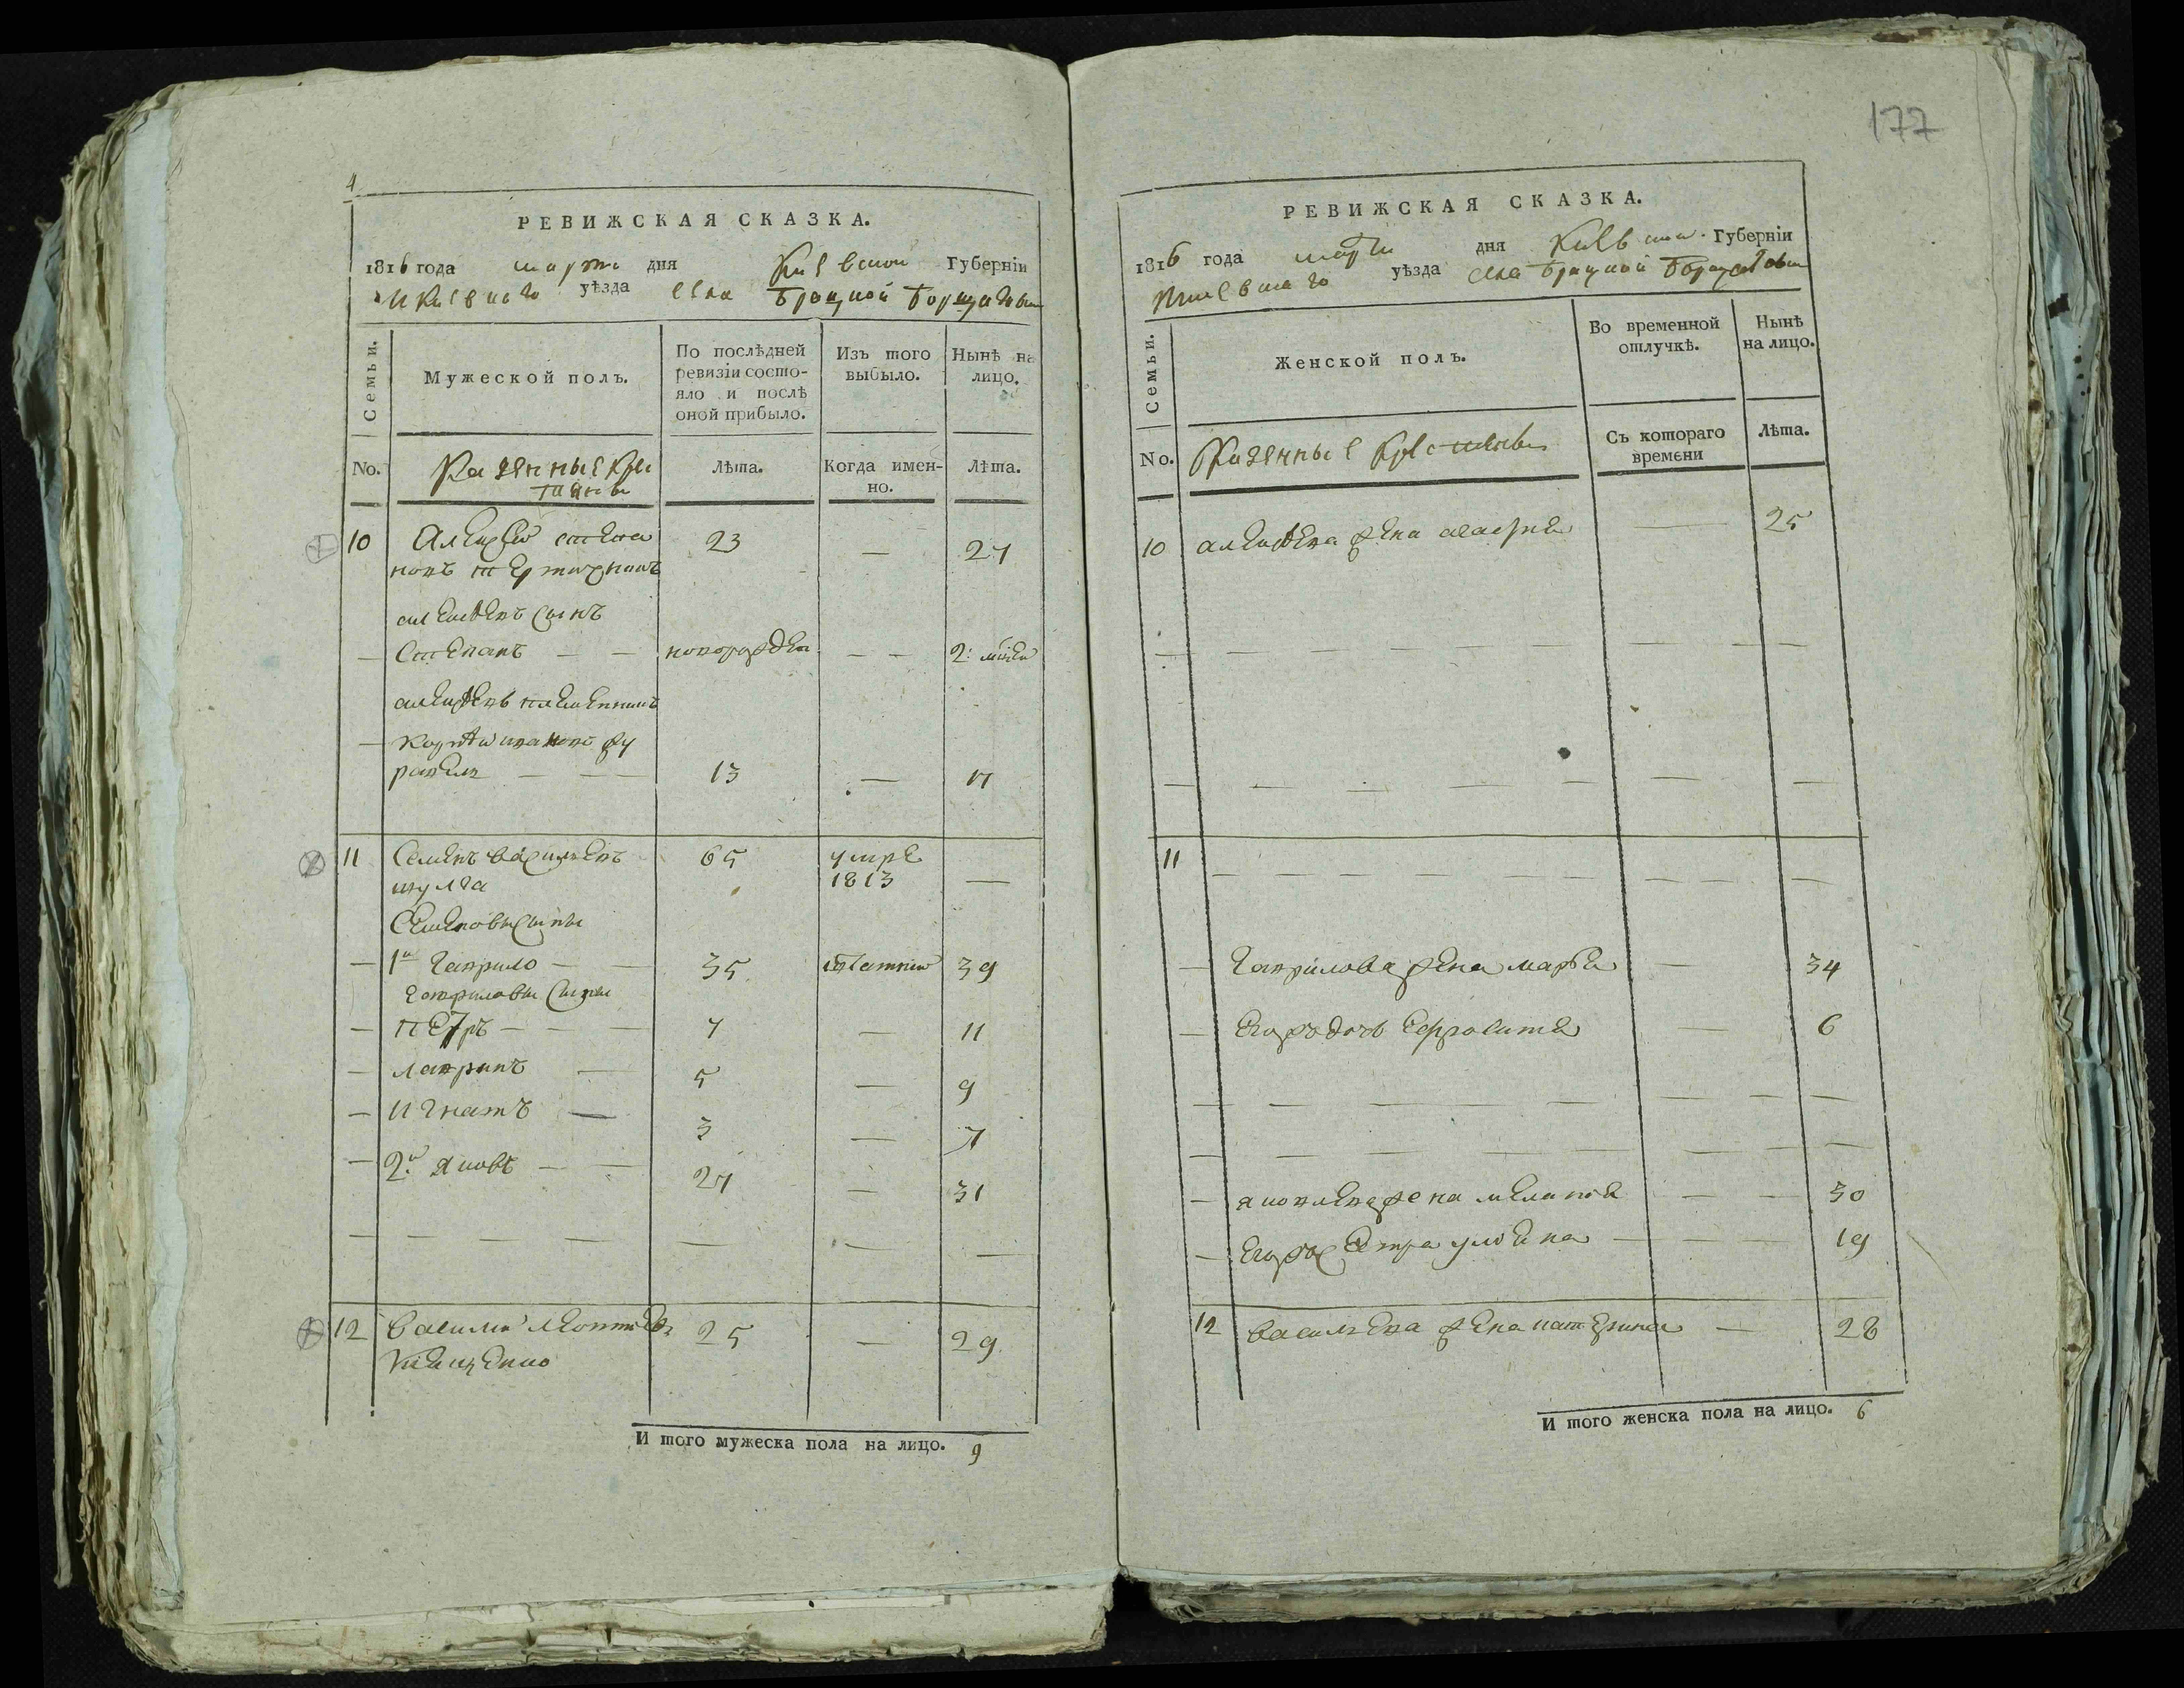 4
РЕВИЖСКАЯ СКАЗКА.
1816 года марта дня Киевской Губерніи
Киевскаго уѣзда села Брацкой Борщаговки
Семьи.
Мужеской полъ.
По послѣдней
ревизіи состо-
яло и послѣ
оной прибыло.
Изъ того
выбыло.
Нынѣ на
лицо.
No.
Казенные Кре
стяне
Лѣта.
Когда имен-
но.
Лѣта.
10 Алексей степа
новъ 23 — 27
алексѣевъ сынъ
— Степанъ — — новорожден — — 2: мсцей
алексѣевъ племенникъ
— 13 — 17
11 Семенъ васильевъ 65 умре
шулга 1813 —
Семеновы сыны
— 1й гаврило — — 35 39
гавриловы сыны
— петръ — — — 7 — 11
— лавринъ — 5 — 9
— игнатъ — 3 — 7
— 2й яковъ — — 27 — 31
— — — — — — — —
12 василий леонтиевъ 25 — 29
И того мужеска пола на лицо. 9
177
РЕВИЖСКАЯ СКАЗКА.
1816 года марта дня Киевской Губерніи
Киевскаго уѣзда села Брацкой Борщаговки
Семьи.
Женской полъ.
Во временной
отлучкѣ.
Нынѣ
на лицо.
No.
Казенные Крестяне
Съ котораго
времени
Лѣта.
10 алексѣева жена — 25
— — — — — — — —
— — — — — — —
11 — — — — — — — — — —
— гаврилова жена марья — 34
— егожъ дочь ефросиня — 6
— — — — — — —
— — — — — — — —
— яковлева жена меланія — — 30
— егожъ сестра улияна — — — 19
12 васильева жена катерина — 28
И того женска пола на лицо. 6